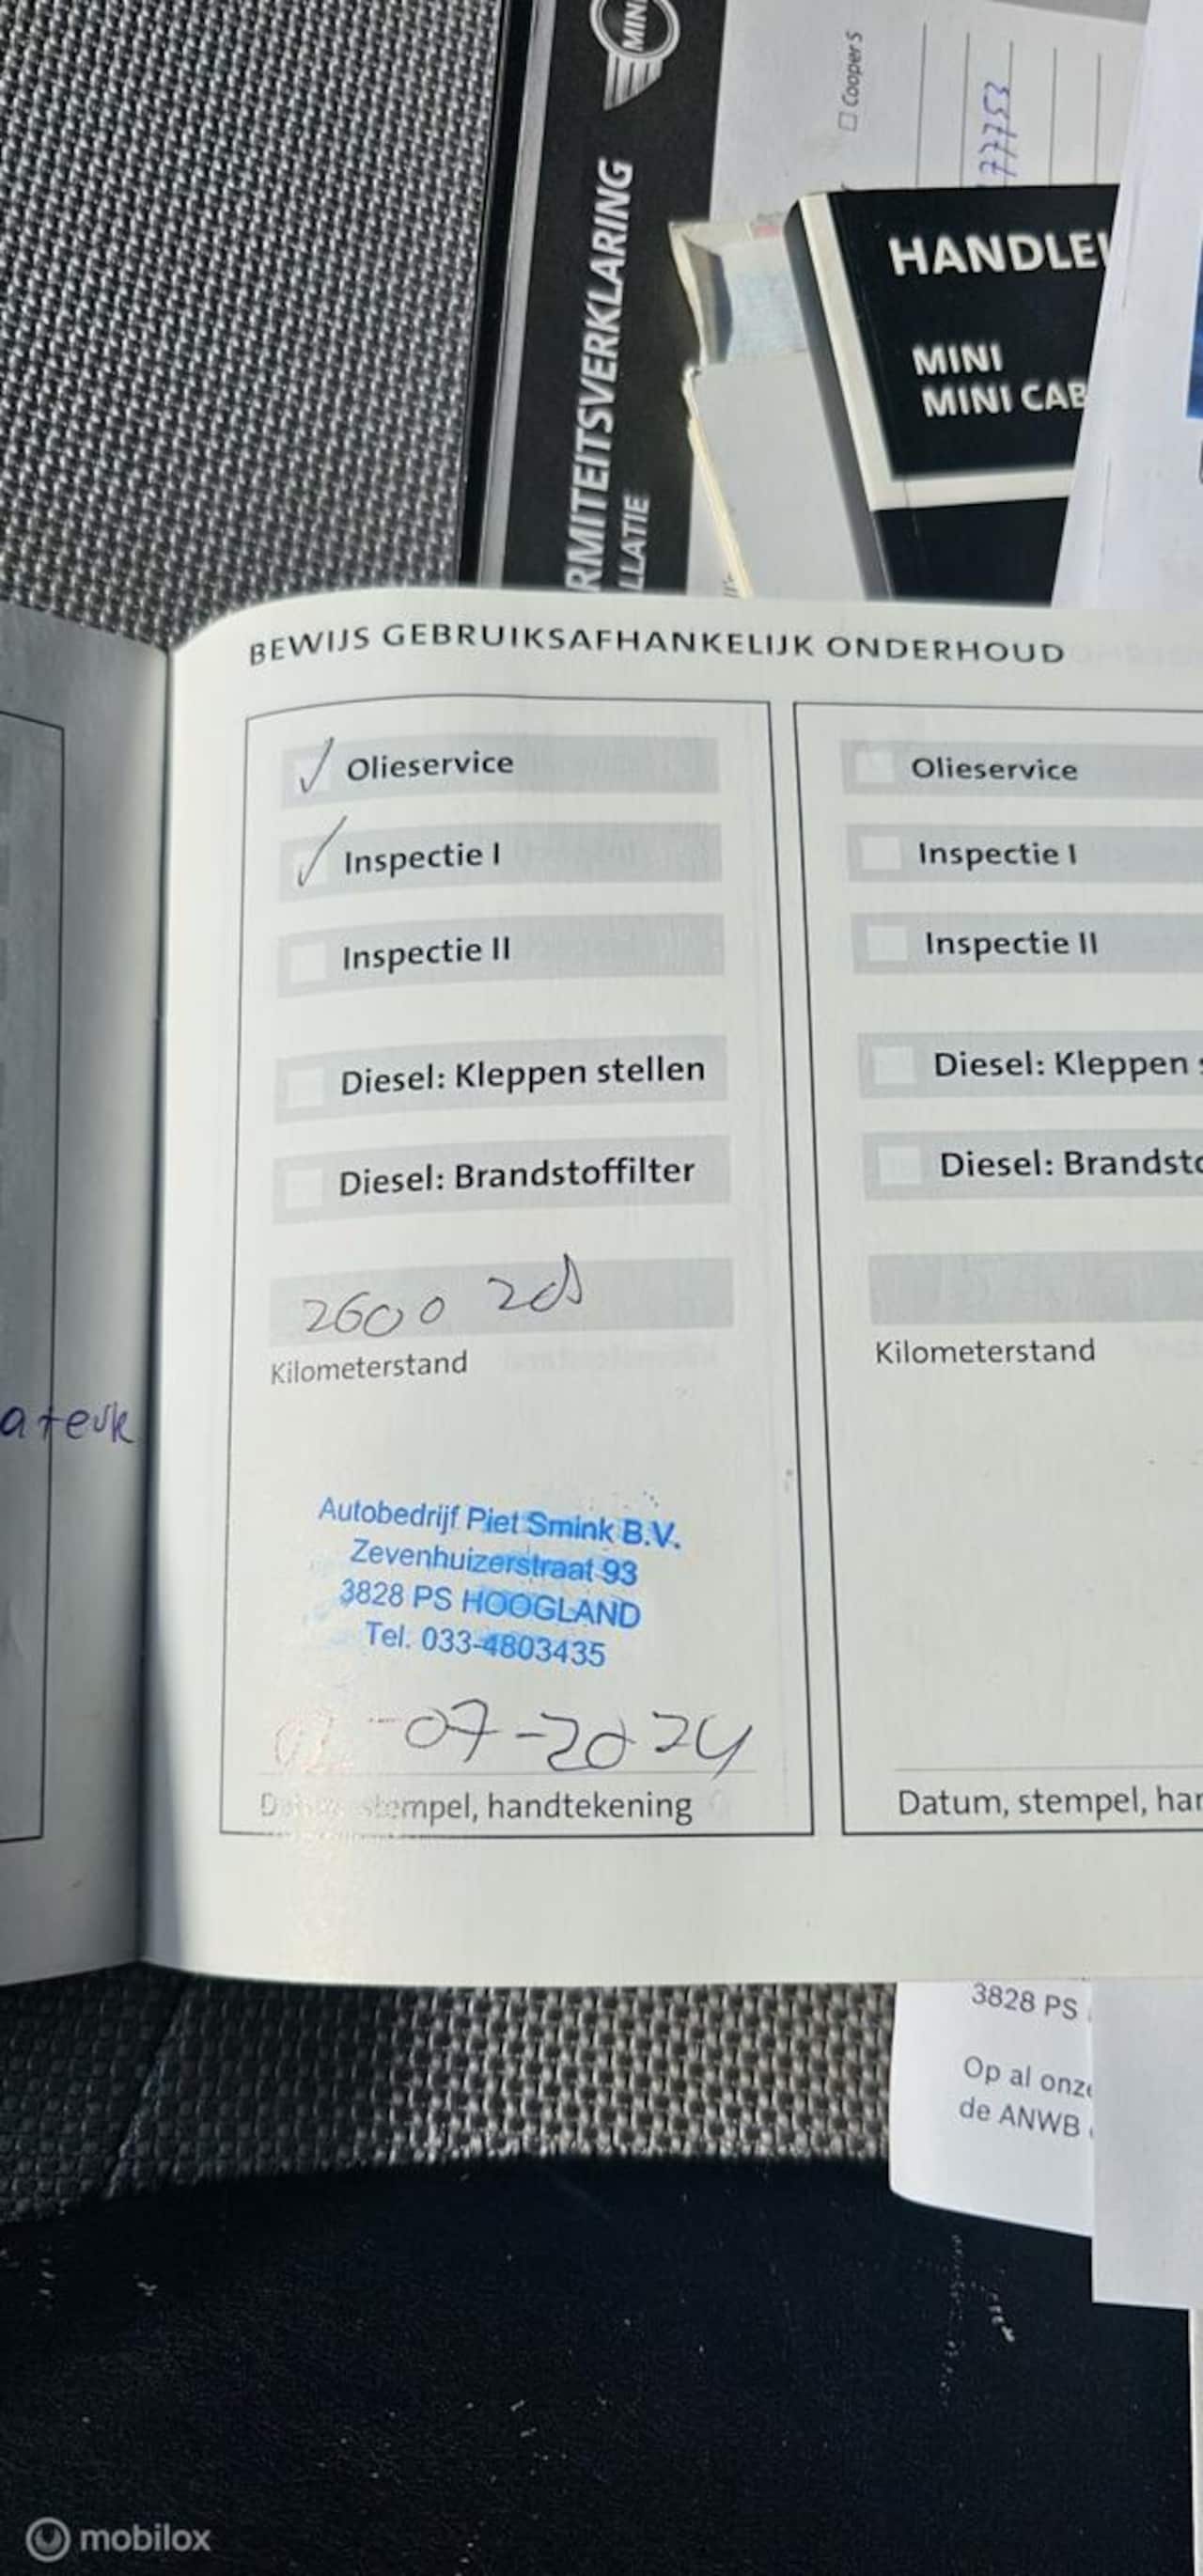 MINI
RMITEITSVERKLARING
LLATIE
Cooper S
77753
HANDLEI
MINI
MINI CAB
BEWIJS GEBRUIKSAFHANKELIJK ONDERHOUD
Olieservice
Inspectie I
Inspectie II
Diesel: Kleppen stellen
Diesel: Brandstoffilter
Kilometerstand
Autobedrijf Piet Smink B.V.
Zevenhuizerstraat 93
3828 PS HOOGLAND
Tel. 033-4803435
-07-2024
stempel, handtekening
Olieservice
Inspectie I
Inspectie II
Diesel: Kleppen
Diesel: Brandsto
Kilometerstand
Datum, stempel, han
3828 PS
Op al onze
de ANWB
mobilox